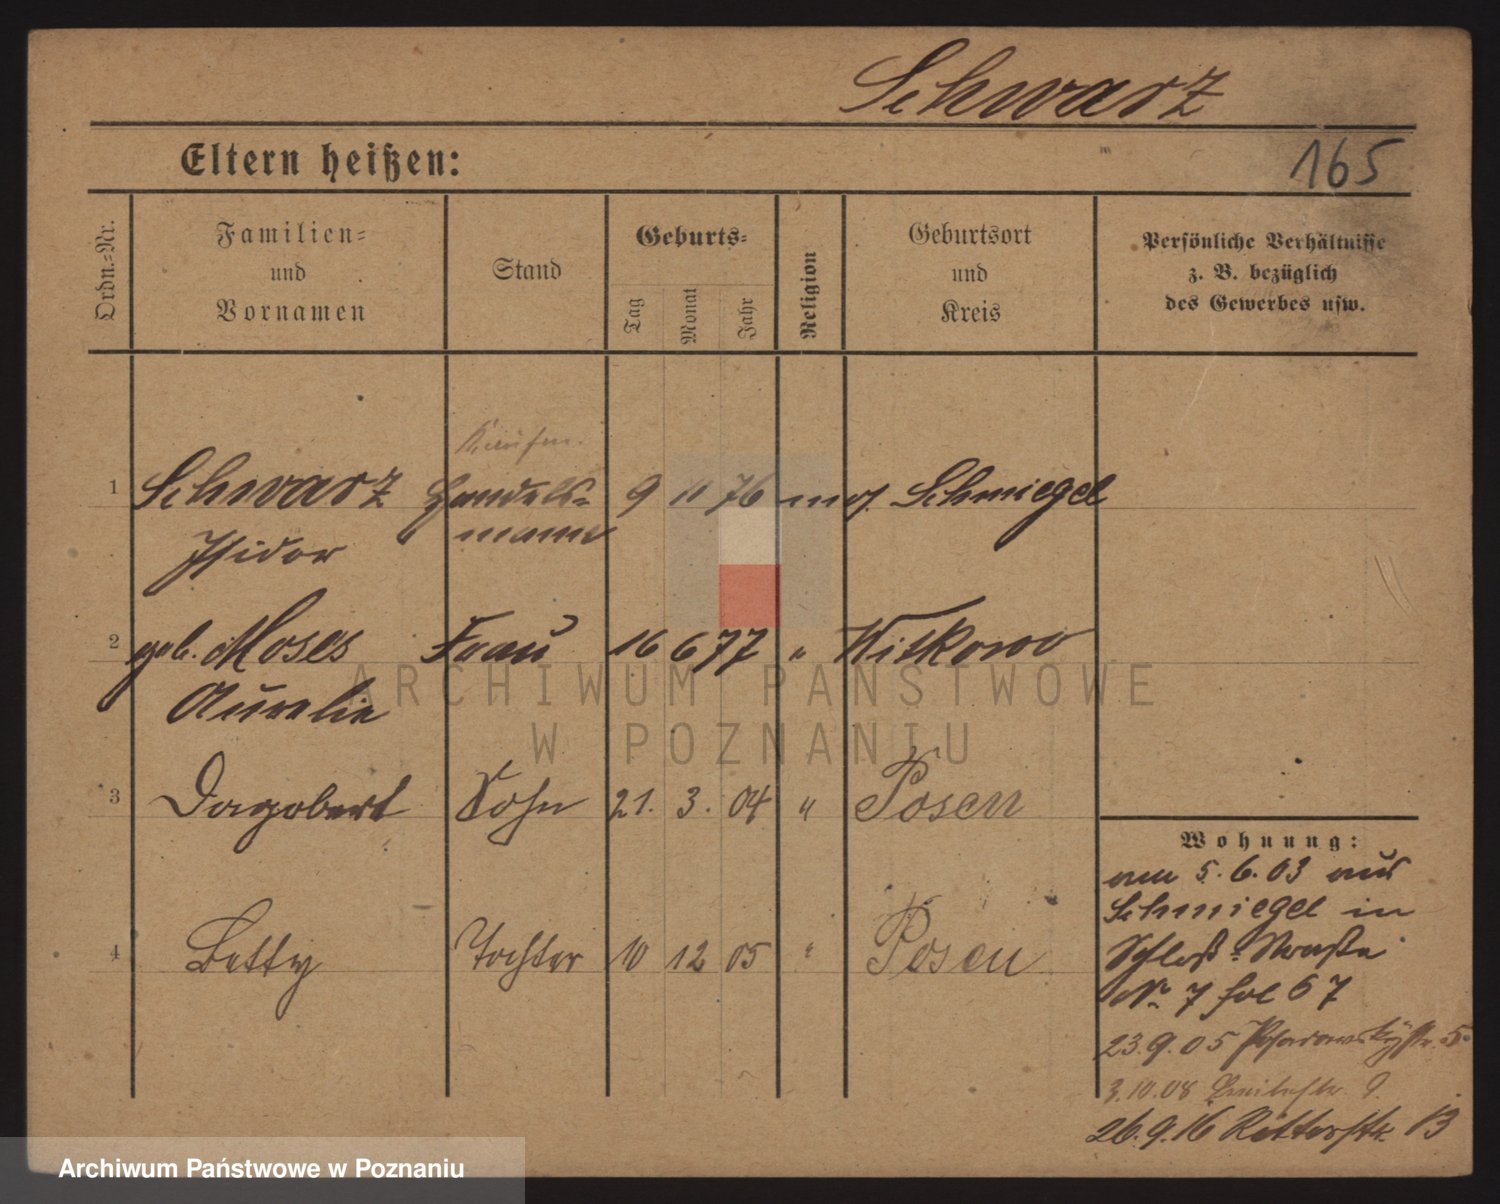 Schwarz
Eltern heißen:
165
Ordn.-Nr.
Familien-
und
Vornamen
Stand
Geburts-
Tag
Monat
Jahr
Religion
Geburtsort
und
Kreis
Persönliche Verhältnisse
z. B. bezüglich
des Gewerbes usw.
Kaufm.
1 Schwarz Handels- 9 11 76 mos. Schmiegel
Isidor mann
2 geb. Moses Frau 16 6 77 " Witkowo
Aurelie
3 Dagobert Sohn 21. 3. 04 " Posen
4 Betty Tochter 10 12 05 " Posen
Wohnung:
am 5.6.03 aus
Schmiegel in
Schloß-Straße
No 7 fol 67
23.9.05 Posadowskystr. 5.
3.10.08 9.
26.9.16 Ritterstr. 13
ARCHIWUM PAŃSTWOWE
W POZNANIU
Archiwum Państwowe w Poznaniu